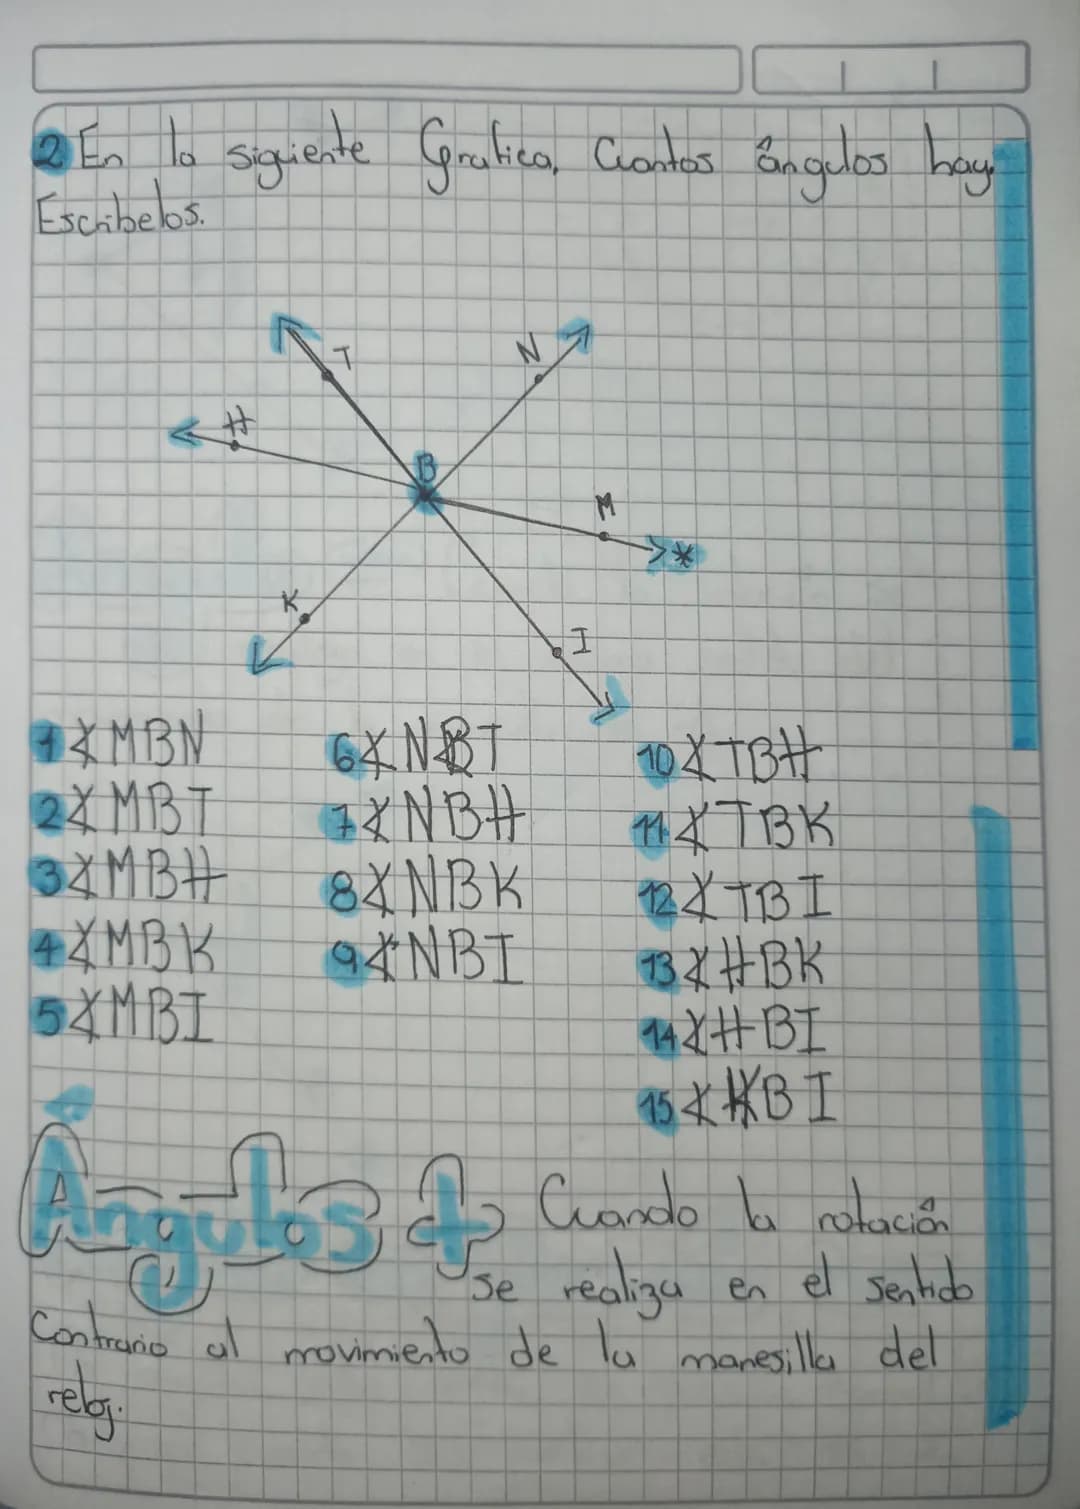 2 En la siguiente Grafica, Cuantos ângulos hay
Escribelos.
T
N
H
B
M
*
K
I
1 ∡MBN
2 ∡MBT
3 ∡MBH
4 ∡MBK
5 ∡MBI
6 ∡NBT
7 ∡NBH
8 ∡NBK
9 ∡NBI
10 ∡TBH
11 ∡TBK
12 ∡TBI
13 ∡HBK
14 ∡HBI
15 ∡KBI
Ángulos + Cuando la rotaciôn
se realiza en el sentido
Contrario al movimiento de la manesilla del
reloj.